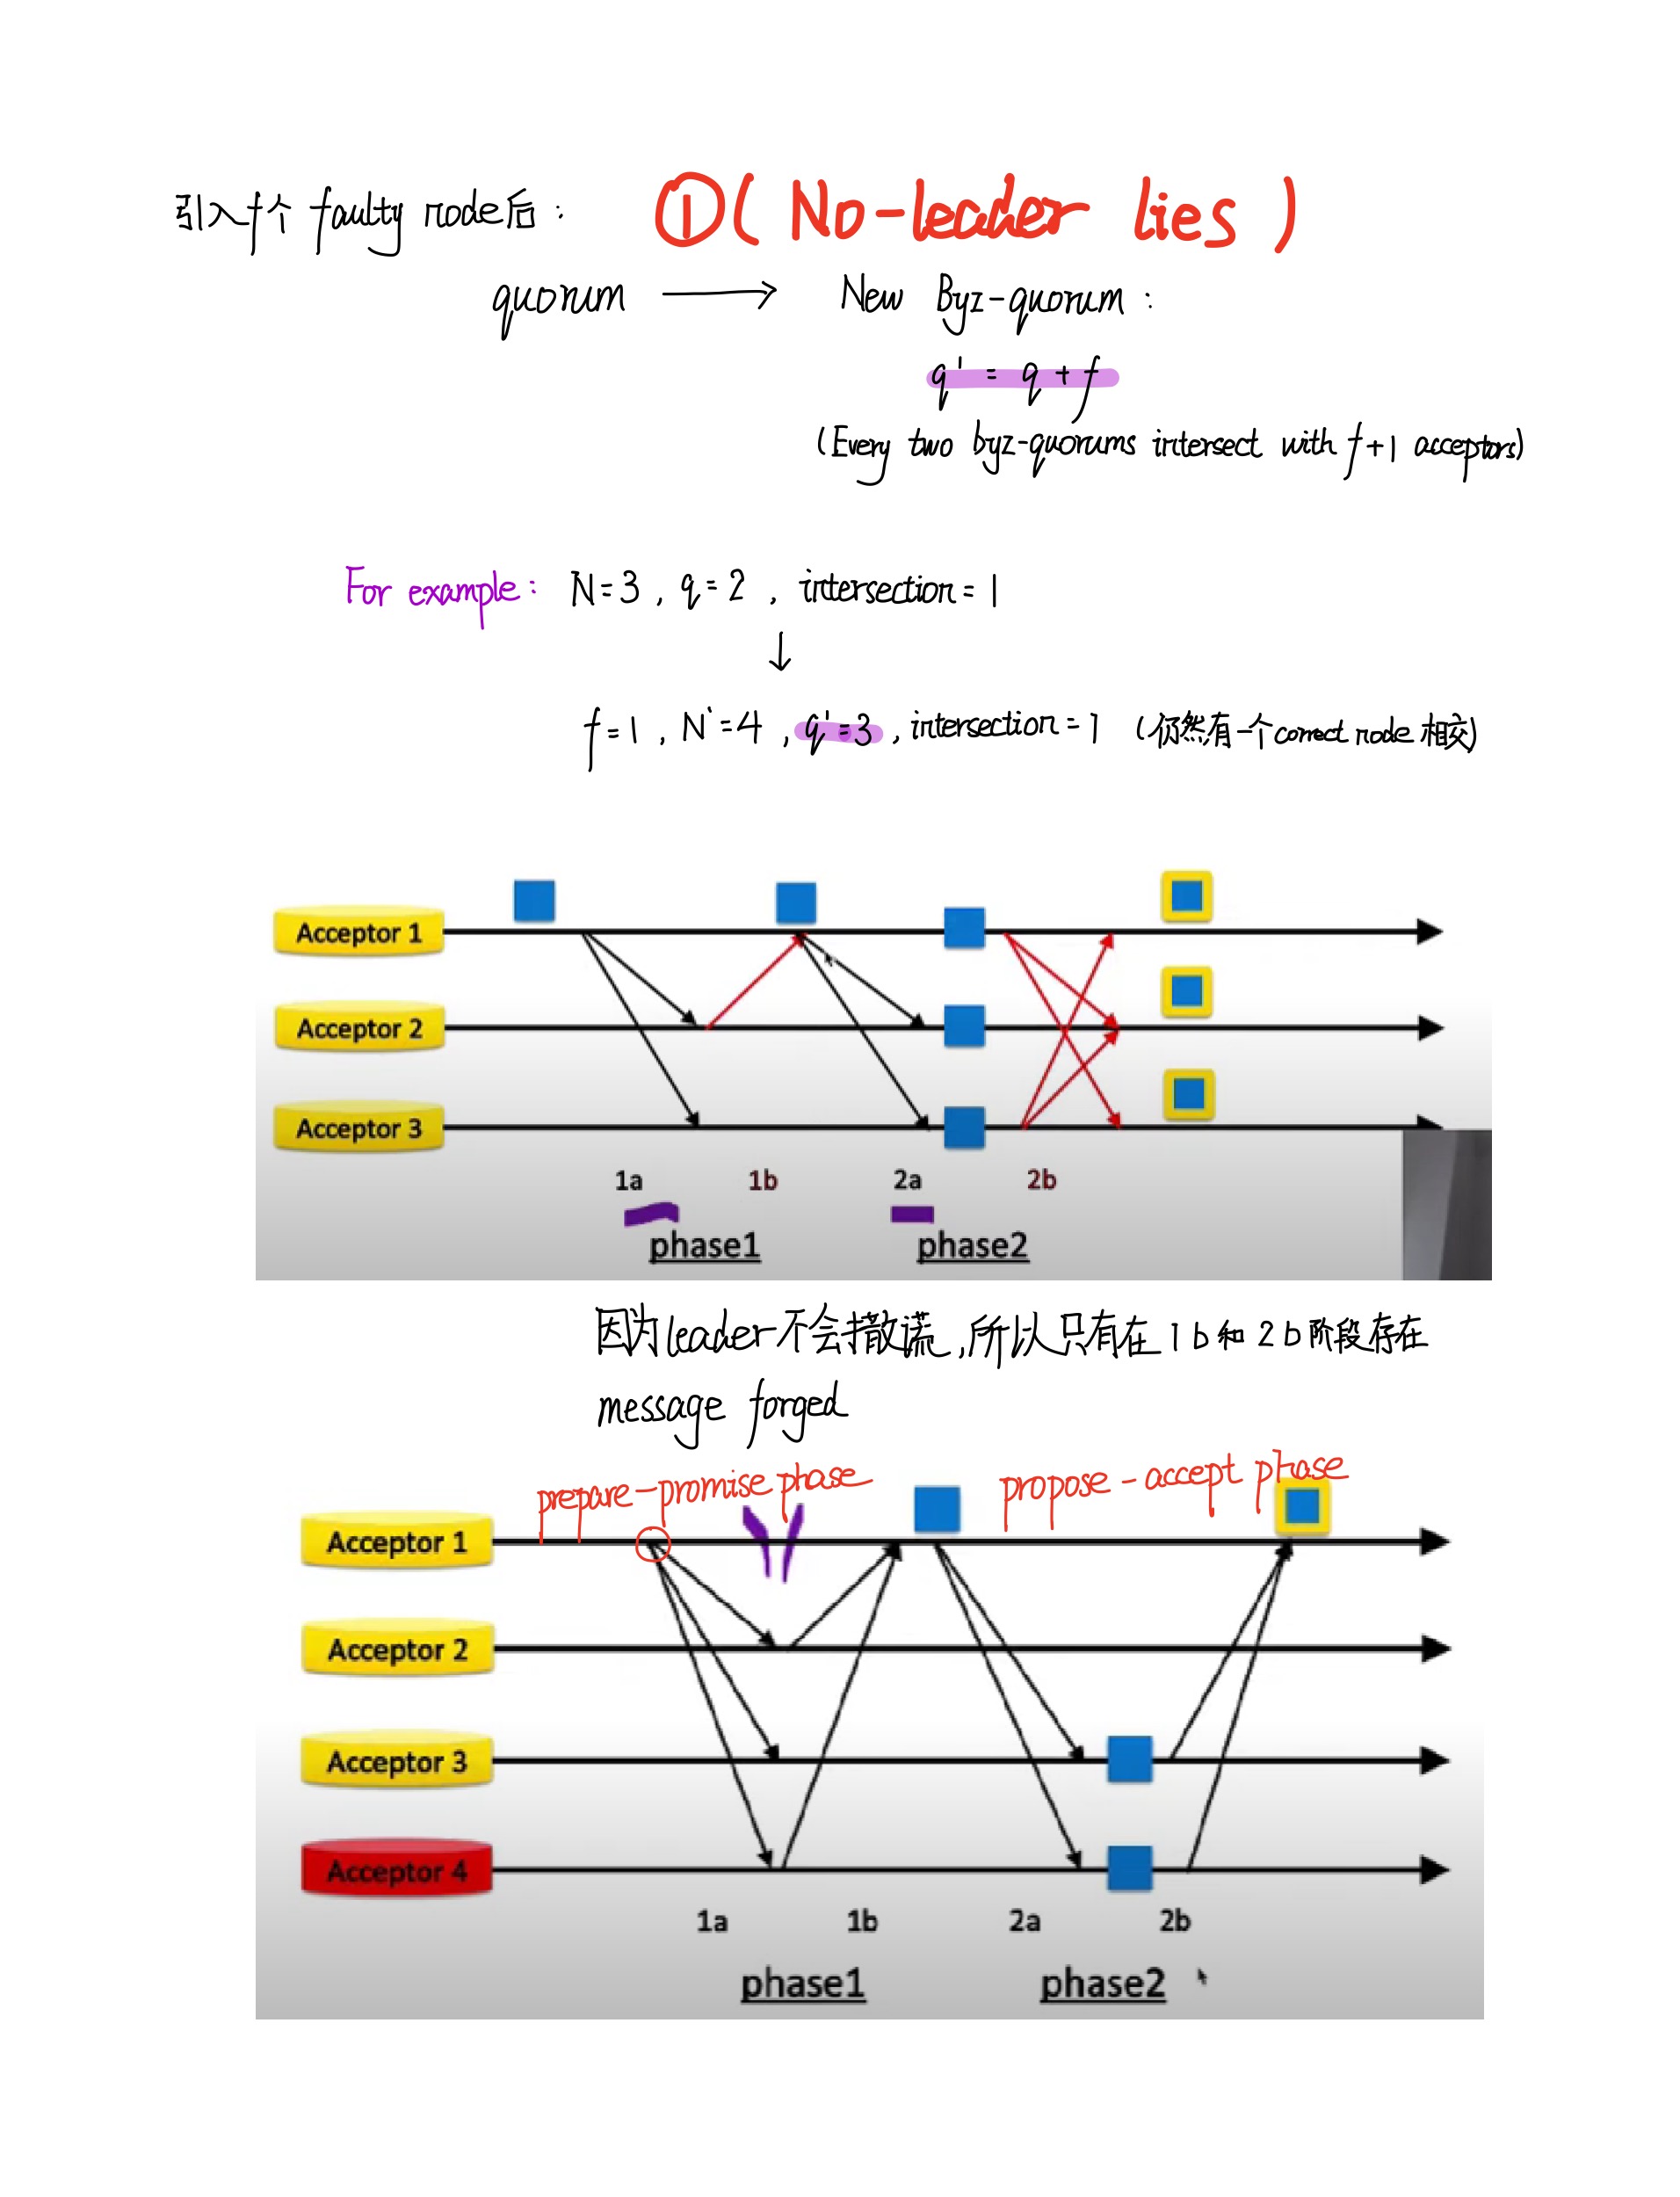 引入f个 faulty node后： ①( No-leader lies )
quorum ⟶ New Byz-quorum :
q' = q + f
(Every two byz-quorums intersect with f+1 acceptors)
For example: N=3 , q=2 , intersection=1
↓
f=1 , N'=4 , q'=3 , intersection=1 (仍然有一个correct node 相交)
Acceptor 1
Acceptor 2
Acceptor 3
1a 1b 2a 2b
phase1 phase2
因为leader不会撒谎,所以只有在1b和2b阶段存在
message forged
prepare-promise phase propose-accept phase
Acceptor 1
Acceptor 2
Acceptor 3
Acceptor 4
1a 1b 2a 2b
phase1 phase2